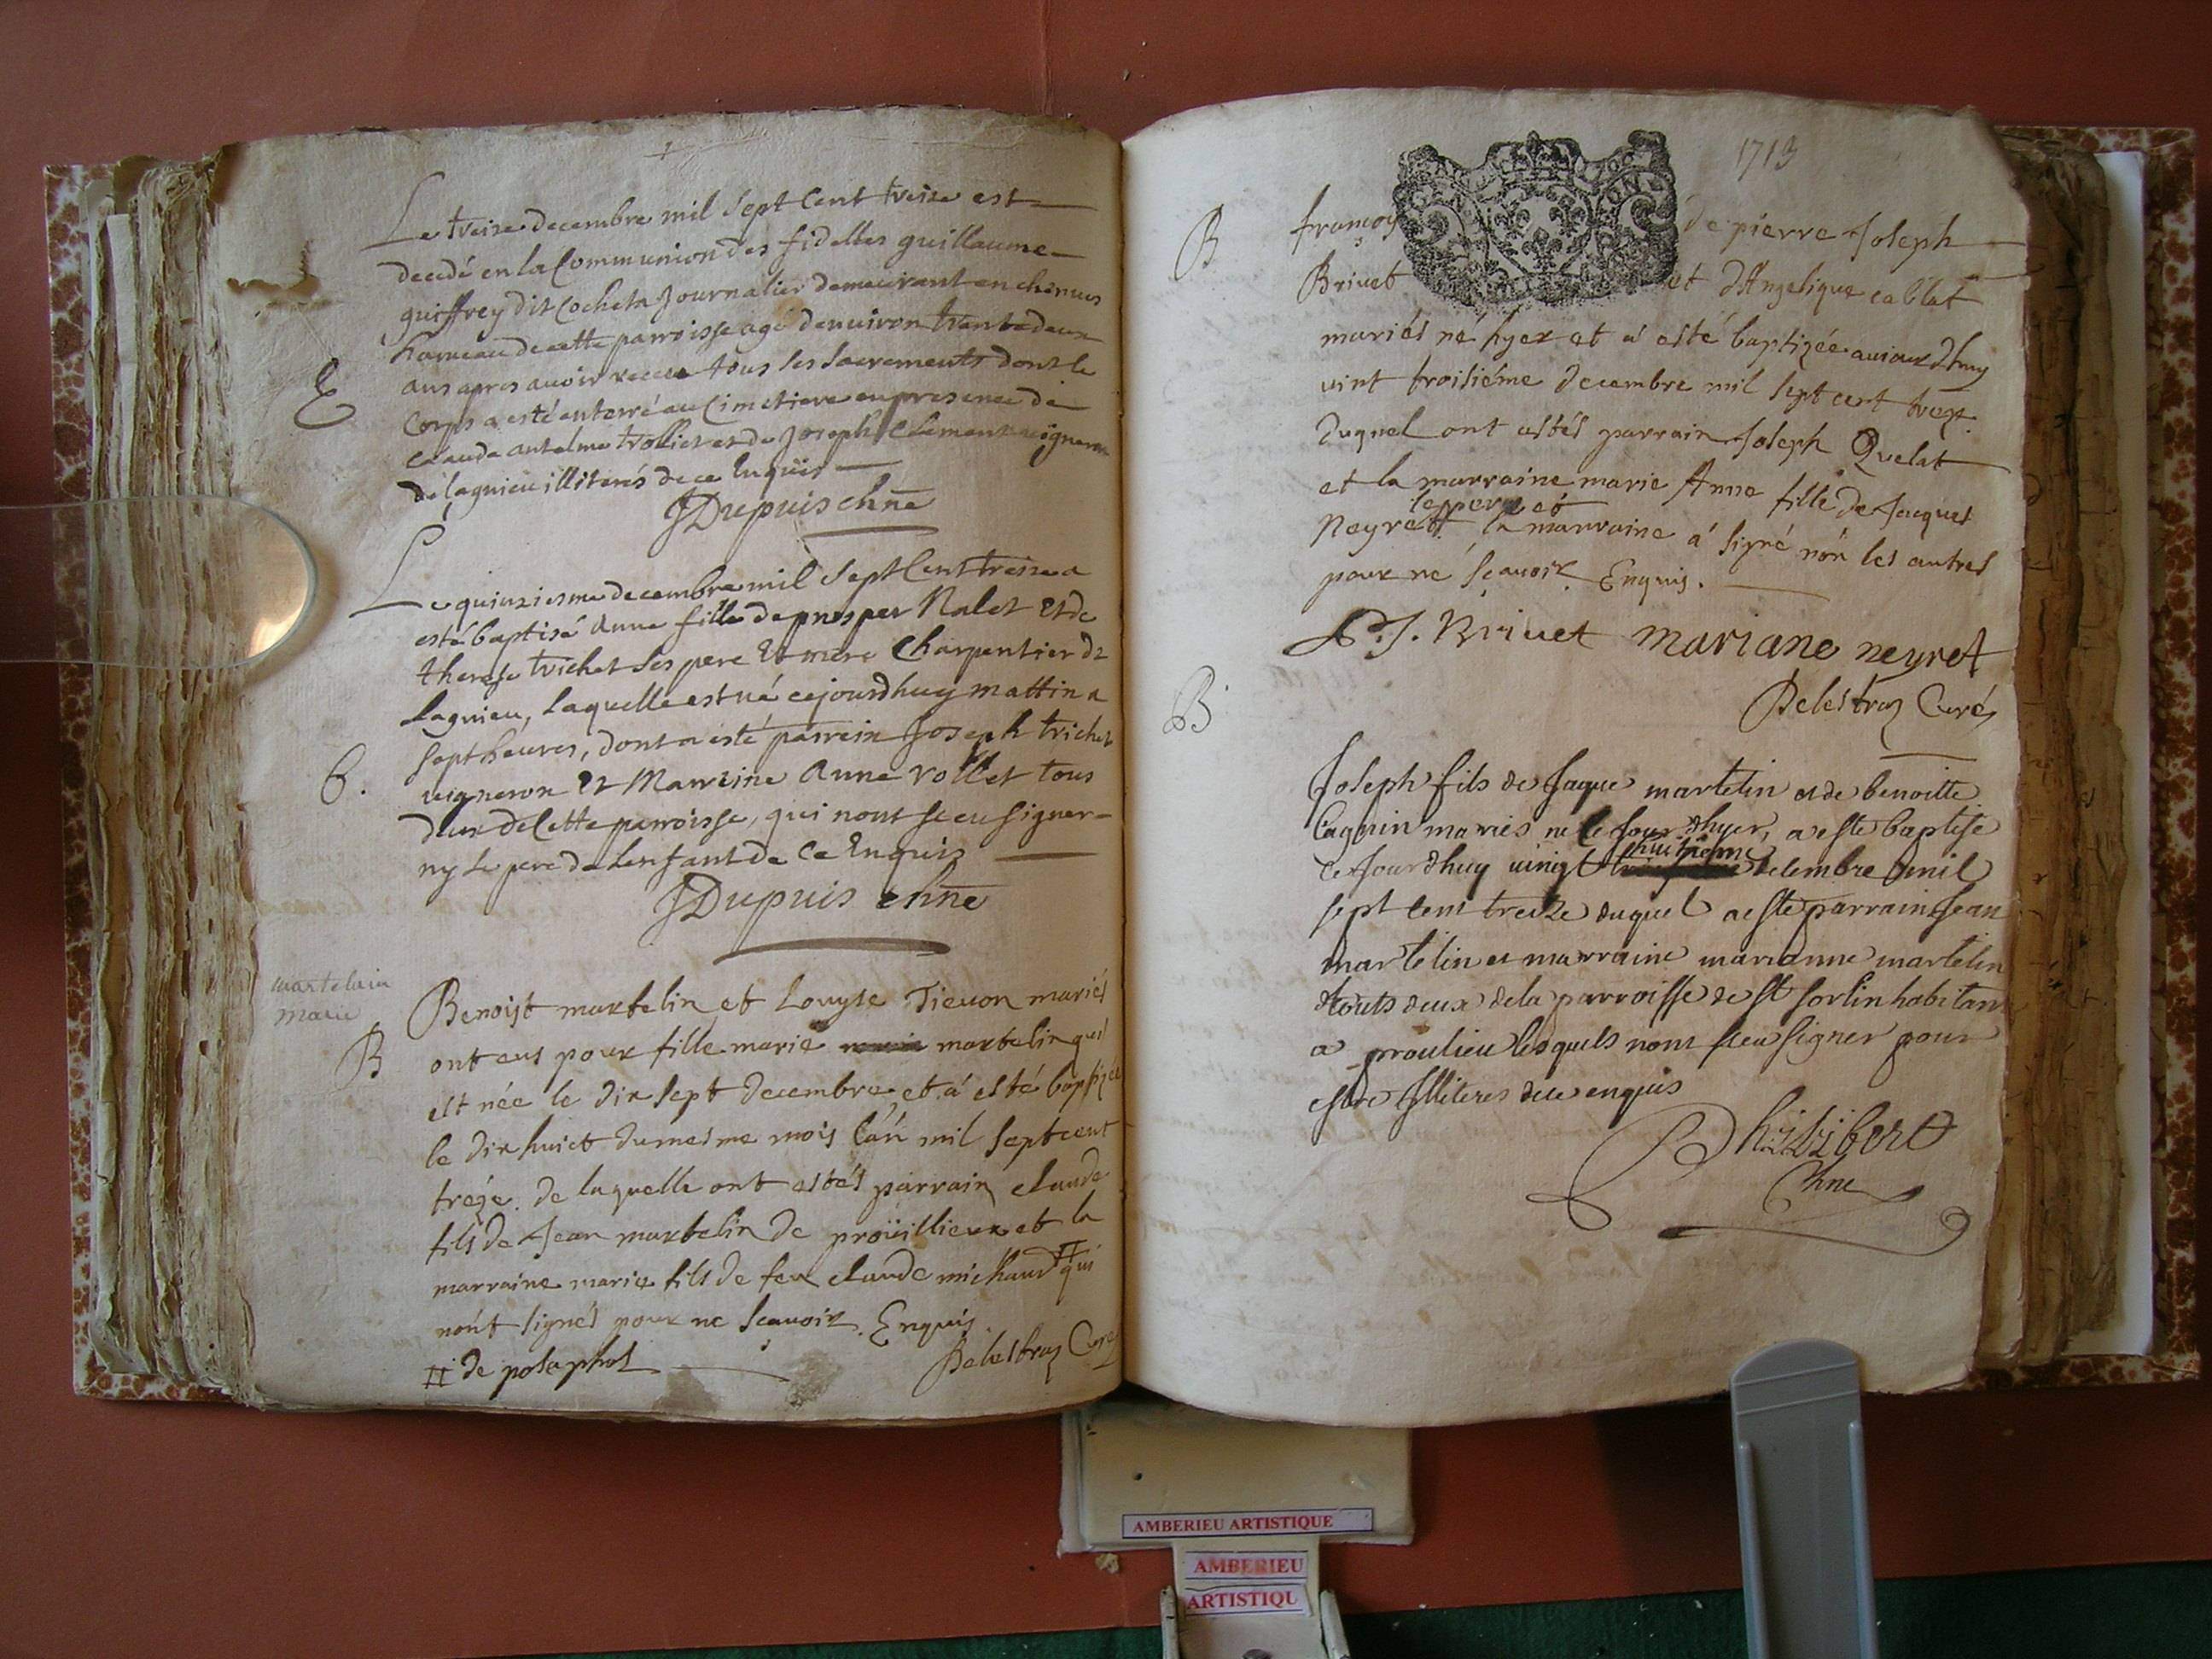 Le treize decembre mil sept cent treize est
decedé en la Communion des fidelles guillaume
guiffrey dit Cochet Journalier demeurant en chenus
hameau de cette parroisse agé denuiron trente deux
E
ans apres auoir receu tous les sacrements dont le
Corps a esté enterré au Cimetiere en presence de
Claude antelme trolliet et de Joseph Clement uigneron
de lagnieu illiterés de ce Enquis
JDupuis chne
Le quinziesme decembre mil sept Cent treize a
esté baptisé Anne fille de prosper Nalet Et de
therese trichet ses pere Et mere Charpentier de
lagnieu, laquelle est né cejourdhuy mattin a
sept heures, dont a esté parrein Joseph trichet
B.
uigneron Et Marreine Anne rollet tous
deux de Cette parroisse, qui nont sceu signer
ny le pere de Lenfant de Ce Enquis
JDupuis chne
martelain
marie
B
Benoist martelin et Louyse Tieuon mariés
ont eus pour fille marie martelin qui
est née le dix sept decembre et á esté baptizée
le dix huict du mesme mois l'an mil sept cent
treze. de laquelle ont estés parrain claude
fils de Jean martelin de proüillieux et la
marraine marie fils de feu claude michaud # qui
nont signés pour ne sçauoir. Enquis.
# de posaphol
Delestraz Curé
1713
B
françoy de pierre Joseph
Briuet et d'Angelique cablat
mariés né hyer et a esté baptizée auiourdhuy
uint troisiéme decembre mil sept cent treze.
duquel ont estés parrain Joseph Quelat
et la marraine marie Anne fille de Jacques
le pere et
Neyret la marraine á signé nón les autres
pour ne sçauoir Enquis.
P.J. Briuet mariane neyret
Delestraz Curé
B
Joseph fils de Jaque martelin et de benoitte
Cagnin mariés né le Jour dhyer, a este baptise
huitieme
ce Jourdhuy uingt decembre mil
sept cent treize duquel a este parrain Jean
martelin et marraine marianne martelin
touts deux de la parroisse de st sorlin habitans
a proulieu lesquels nont sceu signer pour
estre Illiteres de ce enquis
Philibert
Chne
AMBERIEU ARTISTIQUE
AMBERIEU
ARTISTIQU